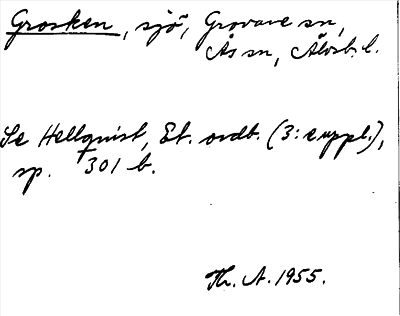 Grosken, sjö, Grovare sn,
Ås sn, Älvsb. l.
Se Hellquist, Et. ordb. (3: e uppl.),
sp. 301 b.
Th. A. 1955.